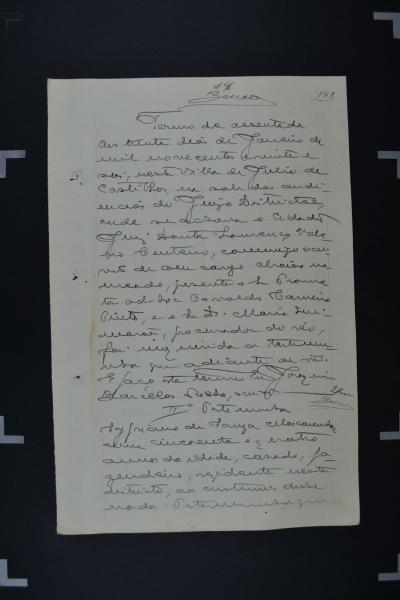 148
Termo de assentada
Aos trinta dias de Janeiro de
mil novecentos e vinte e
seis, nesta Villa de Julio de
Castilhos, na sala das audi-
encias do Juizo Districtal,
onde se achava o cidadão
Juiz Doutor Lourenço
commigo escri-
vão de seu cargo abaixo no-
meado, presente o Sr. Promo-
tor ad-hoc Carneiro
Pinto, e o Sr. Dr. Mario Gui-
marães, procurador do réo,
foi inquirida a testemu-
nha que adiante se vê.
E faço este termo Eu Joaquim
Barcellos
IIª Testemunha
Cypriano de Souza
com cincoenta e quatro
annos de idade, casado, fa-
zendeiro, residente neste
districto, aos costumes disse
nada. Testemunha que